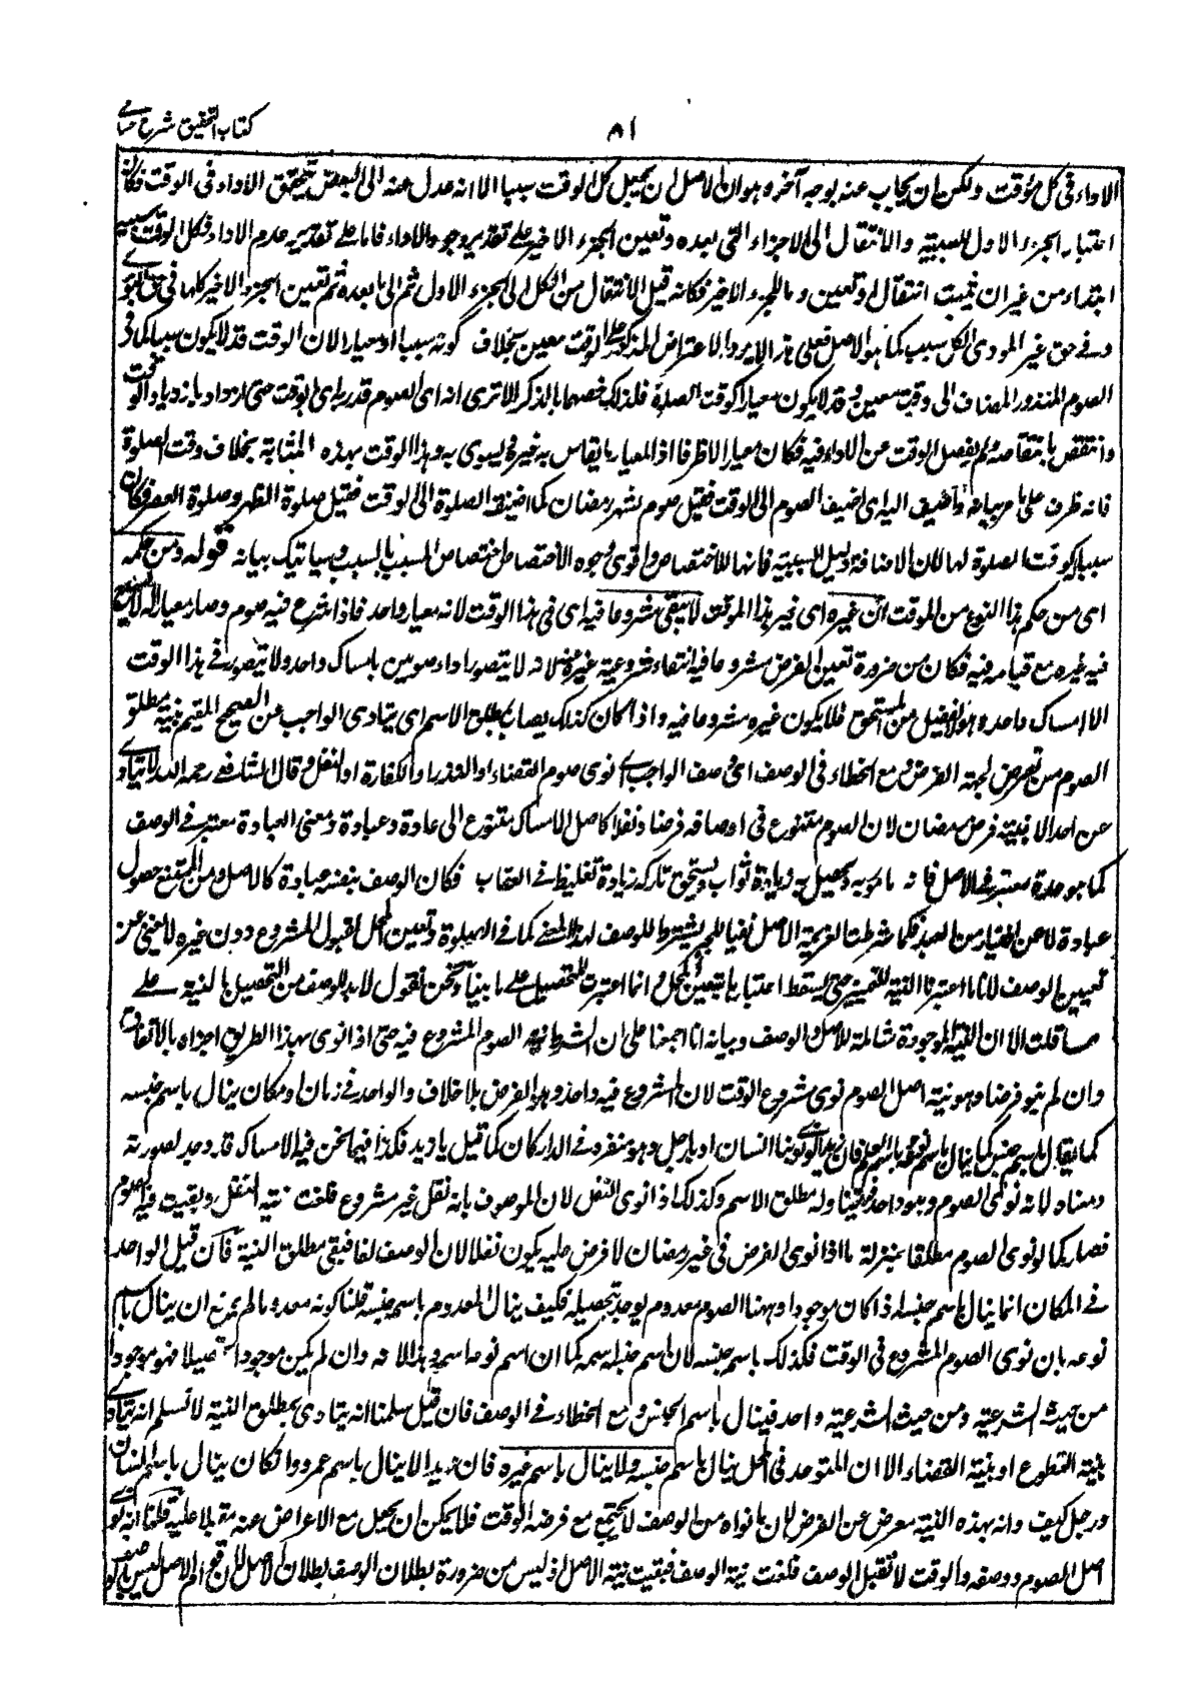 كتاب التحقيق شرح حسامى
٨١
الاداء فى كل مؤقت ولكن ان يجاب عنه بوجه آخر وهو ان الاصل ان يجعل كل الوقت سببا الا انه عدل عنه الى البعض ليتحقق الاداء فى الوقت فكان
اعتبار الجزء الاول للسببية والانتقال الى الاجزاء التى بعده وتعين الجزء الاخير على تقدير وجود الاداء فاما على تقدير عدم الاداء فكل الوقت سبب
ابتداء من غير ان يثبت انتقال او تعين وما للجزء الاخير فكانه قيل الانتقال من الكل الى الجزء الاول ثم الى ما بعده ثم تعين الجزء الاخير كلها فى حق المؤدى
وفى حق غير المودى الكل سبب كما هو الاصل فعلى هذا لا يرد الاعتراض المذكور على الوقت معين بخلاف كونه سببا او معيارا لان الوقت قد لا يكون سببا كما فى
الصوم المنذور المضاف الى وقت معين وقد لا يكون معيارا كوقت الصلوة فلذلك خصهما بالذكر الا ترى انه اى الصوم قدر به اى بالوقت حتى ازداد بازدياد الوقت
وانتقص بانتقاصه ولم يفصل الوقت عن الاداء فيه فكان معيارا لا ظرفا اذ المعيار ما يقاس به غيره ويسوى به وهذا الوقت بهذه المثابة بخلاف وقت الصلوة
فانه ظرف على ما مر بيانه واضيف اليه اى اضيف الصوم الى الوقت فقيل صوم شهر رمضان كما اضيفت الصلوة الى الوقت فقيل صلوة الظهر وصلوة العصر فكان
سببا كوقت الصلوة لها لان الاضافة دليل السببية فانها للاختصاص واقوى وجوه الاختصاص اختصاص المسبب بالسبب وسياتيك بيانه قوله ومن حكمه
اى من حكم هذا النوع من الموقت ان غيره اى غير هذا الموقت لا يبقى مشروعا فيه اى فى هذا الوقت لانه معيار واحد فاذا شرع فيه صوم وصار معيارا له لا يسع
فيه غيره مع قيامه فيه فكان من ضرورة تعين الفرض مشروعا فيه انتفاء مشروعية غيره لانه لا يتصور اداء صومين بامساك واحد ولا يتصور فى هذا الوقت
الا امساك واحد وهو لا يفضل من المستحق فلا يكون غيره مشروعا فيه واذا كان كذلك يصاب بمطلق الاسم اى يتادى الواجب عن الصحيح المقيم بنية مطلق
الصوم من تعرض لجهة الفرض ومع الخطاء فى الوصف اى وصف الواجب بان نوى صوم القضاء او النذر او الكفارة او النفل وقال الشافعى رحمه الله لا يتادى
عن احد الا بنية فرض رمضان لان الصوم متنوع فى اوصافه فرضا ونفلا كاصل الامساك متنوع الى عادة وعبادة ومعنى العبادة معتبر فى الوصف
كما هو معتبر فى الاصل فانه مامور به ويحصل به زيادة ثواب ويستحق تاركه زيادة تغليظ فى العقاب فكان الوصف بنفسه عبادة كالاصل ومن الممتنع حصول
عبادة لا عن اختيار من العبد فكما شرطت العزيمة الاصل نفيا للجبر يشترط للوصف لهذا المعنى كما فى الصلوة وتعين المحل لقبول المشروع دون غيره لا يغنى عن
تعيين الوصف لانا ما اعتبرنا النية للتمييز حتى يسقط اعتبارها بتعين المحل وانما اعتبرت للتحصيل على ما بينا ونحن نقول لا بد للوصف من التحصيل بالنية على
ما قلت الا ان النية الموجودة شاملة للاصل والوصف وبيانه انا اجمعنا على ان الشرط نية الصوم المشروع فيه حتى اذا نوى بهذا الطريق اجزاه بالاتفاق
وان لم ينو فرضا وهو بنية اصل الصوم نوى مشروع الوقت لان المشروع فيه واحد وهو الفرض بلا خلاف والواحد فى زمان او مكان ينال باسم جنسه
كما يقال باسم جنس كما ينال باسم نوعه باسم العلم فان زيدا لو نودى يا انسان او يا رجل وهو منفرد فى الدار كان كما قيل يا زيد فكذا فيما نحن فيه الامساك قد وجد لصورته
ومعناه لانه نوى الصوم وهو واحد فيتناوله مطلق الاسم وكذلك اذا نوى النفل لان الموصوف بانه نفل غير مشروع فلغت نية النفل وبقيت نية الصوم
فصار كما لو نوى الصوم مطلقا بمنزلة ما اذا نوى الفرض فى غير رمضان لا فرض عليه يكون نفلا لان الوصف لغا فبقى مطلق النية فان قيل الواحد
فى المكان انما ينال باسم جنسه اذا كان موجودا وههنا الصوم معدوم يوجد بتحصيله فكيف ينال المعدوم باسم جنسه قلنا كونه معدوما لم يمنع ان ينال باسم
نوعه بان نوى الصوم المشروع فى الوقت فكذلك باسم جنسه لان اسم جنسه اسمه كما ان اسم نوعه اسمه وهذا لانه وان لم يكن موجودا تحصيلا فهو موجود
من حيث الشرعية ومن حيث الشرعية واحد فينال باسم الجنس ومع الخطاء فى الوصف فان قيل سلمنا انه يتادى بمطلق النية لا نسلم انه يتادى
بنية التطوع او بنية القضاء الا ان المتوحد فى المحل ينال باسم جنسه ولا ينال باسم غيره فان زيدا لا ينال باسم عمرو وان كان ينال باسم انسان
ورجل كيف وانه بهذه النية معرض عن الفرض لان ما نواه من الوصف لا يجتمع مع فرض الوقت فلا يمكن ان يجعل مع الاعراض عنه مقبلا عليه قلنا انه نوى
اصل الصوم ووصفه والوقت لا يقبل الوصف فلغت نية الوصف فبقيت نية الاصل اذ ليس من ضرورة بطلان الوصف بطلان الاصل